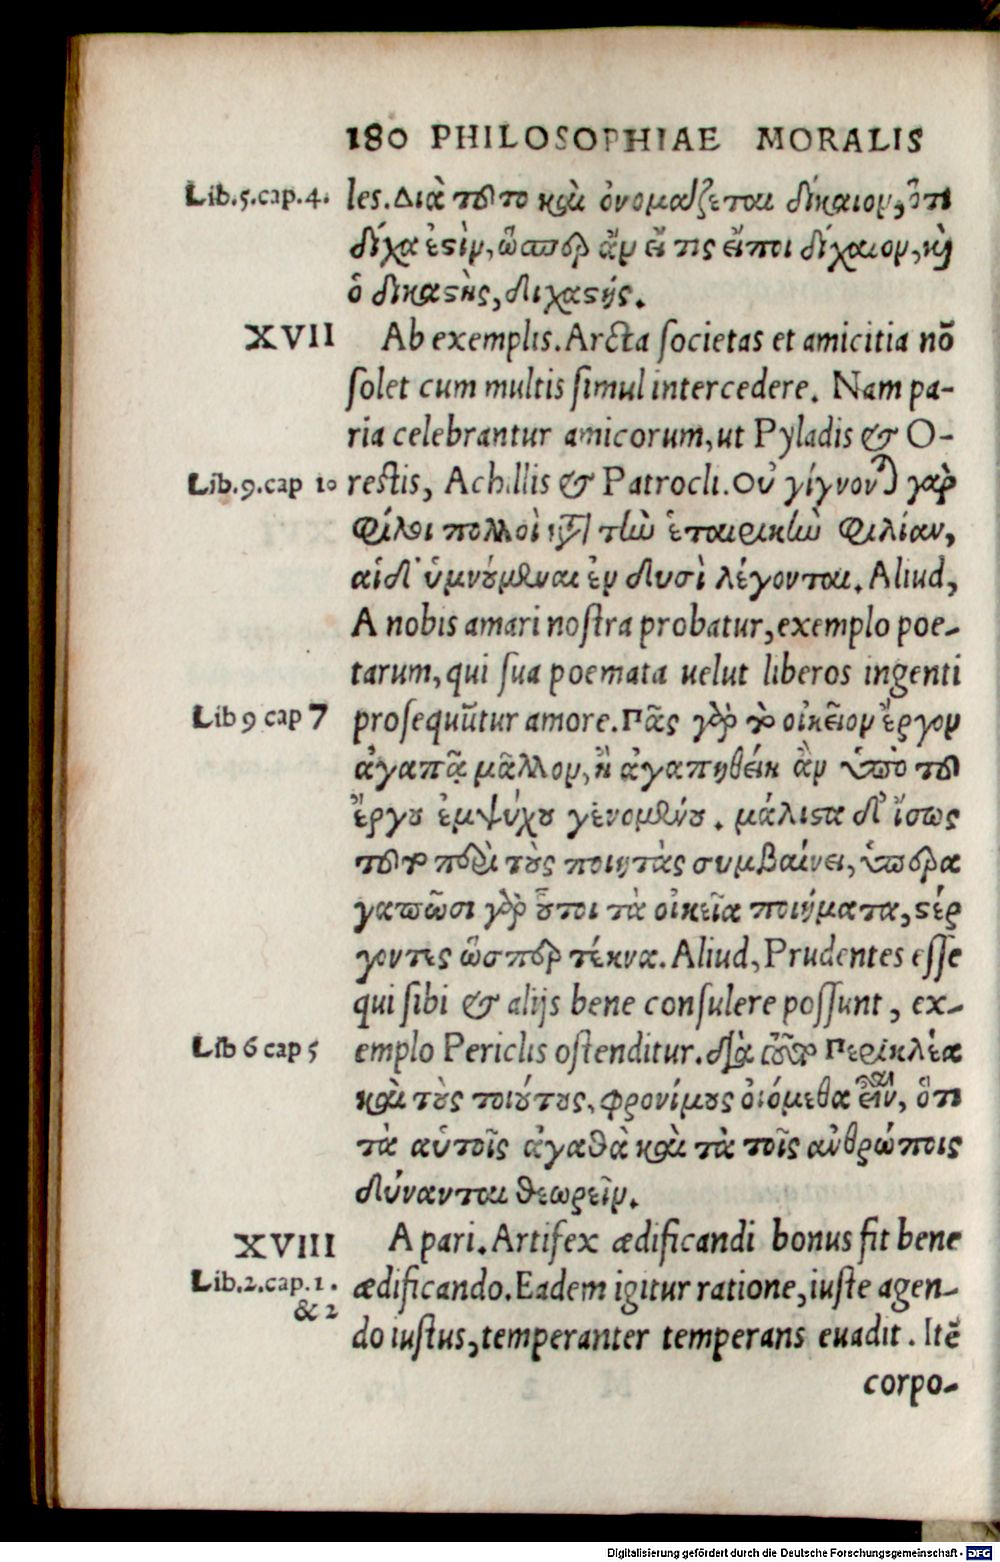 180 PHILOSOPHIAE MORALIS
Lib.5.cap.4. les. Διὰ τοῦτο καὶ ὀνομάζεται δίκαιον, ὅτι
δίχα ἐστὶν, ὥσπερ ἂν εἴ τις εἴποι δίχαιον, καὶ
ὁ δικαστὴς, διχαστής.
XVII Ab exemplis. Arcta societas et amicitia nō
solet cum multis simul intercedere. Nam pa-
ria celebrantur amicorum, ut Pyladis & O-
Lib.9.cap 10 restis, Achillis & Patrocli. Οὐ γίγνονται γὰρ
φίλοι πολλοὶ κατὰ τὴν ἑταιρικὴν φιλίαν,
αἱ δ' ὑμνούμεναι ἐν δυσὶ λέγονται. Aliud,
A nobis amari nostra probatur, exemplo poe-
tarum, qui sua poemata uelut liberos ingenti
Lib 9 cap 7 prosequūtur amore. Πᾶς γὰρ τὸ οἰκεῖον ἔργον
ἀγαπᾷ μᾶλλον, ἢ ἀγαπηθείη ἂν ὑπὸ τοῦ
ἔργου ἐμψύχου γενομένου. μάλιστα δ' ἴσως
τοῦτο περὶ τοὺς ποιητὰς συμβαίνει, ὑπερα
γαπῶσι γὰρ οὗτοι τὰ οἰκεῖα ποιήματα, στέρ
γοντες ὥσπερ τέκνα. Aliud, Prudentes esse
qui sibi & alijs bene consulere possunt, ex-
Lib 6 cap 5 emplo Periclis ostenditur. διὰ τοῦτο Περικλέα
καὶ τοὺς τοιούτους, φρονίμους οἰόμεθα εἶναι, ὅτι
τὰ αὑτοῖς ἀγαθὰ καὶ τὰ τοῖς ἀνθρώποις
δύνανται θεωρεῖν.
XVIII A pari. Artifex ædificandi bonus fit bene
Lib.2.cap.1. ædificando. Eadem igitur ratione, iuste agen-
& 2
do iustus, temperanter temperans euadit. Itē
corpo-
Digitalisierung gefördert durch die Deutsche Forschungsgemeinschaft - DFG